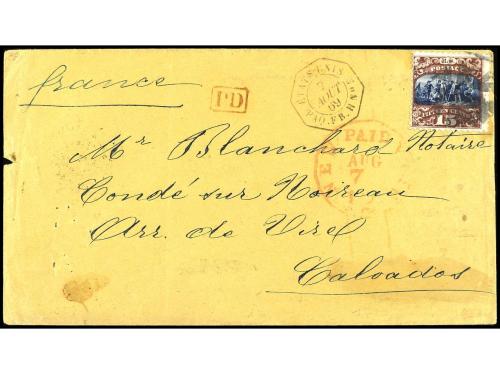 france
PD
ETATS-UNIS
AOUT
69
PAQ. FR. H
U.S. POSTAGE
15
PAID
AUG
7
NEW
Mr Blanchard Notaire
Condé sur Noireau
Arr. de Virel
Calvados